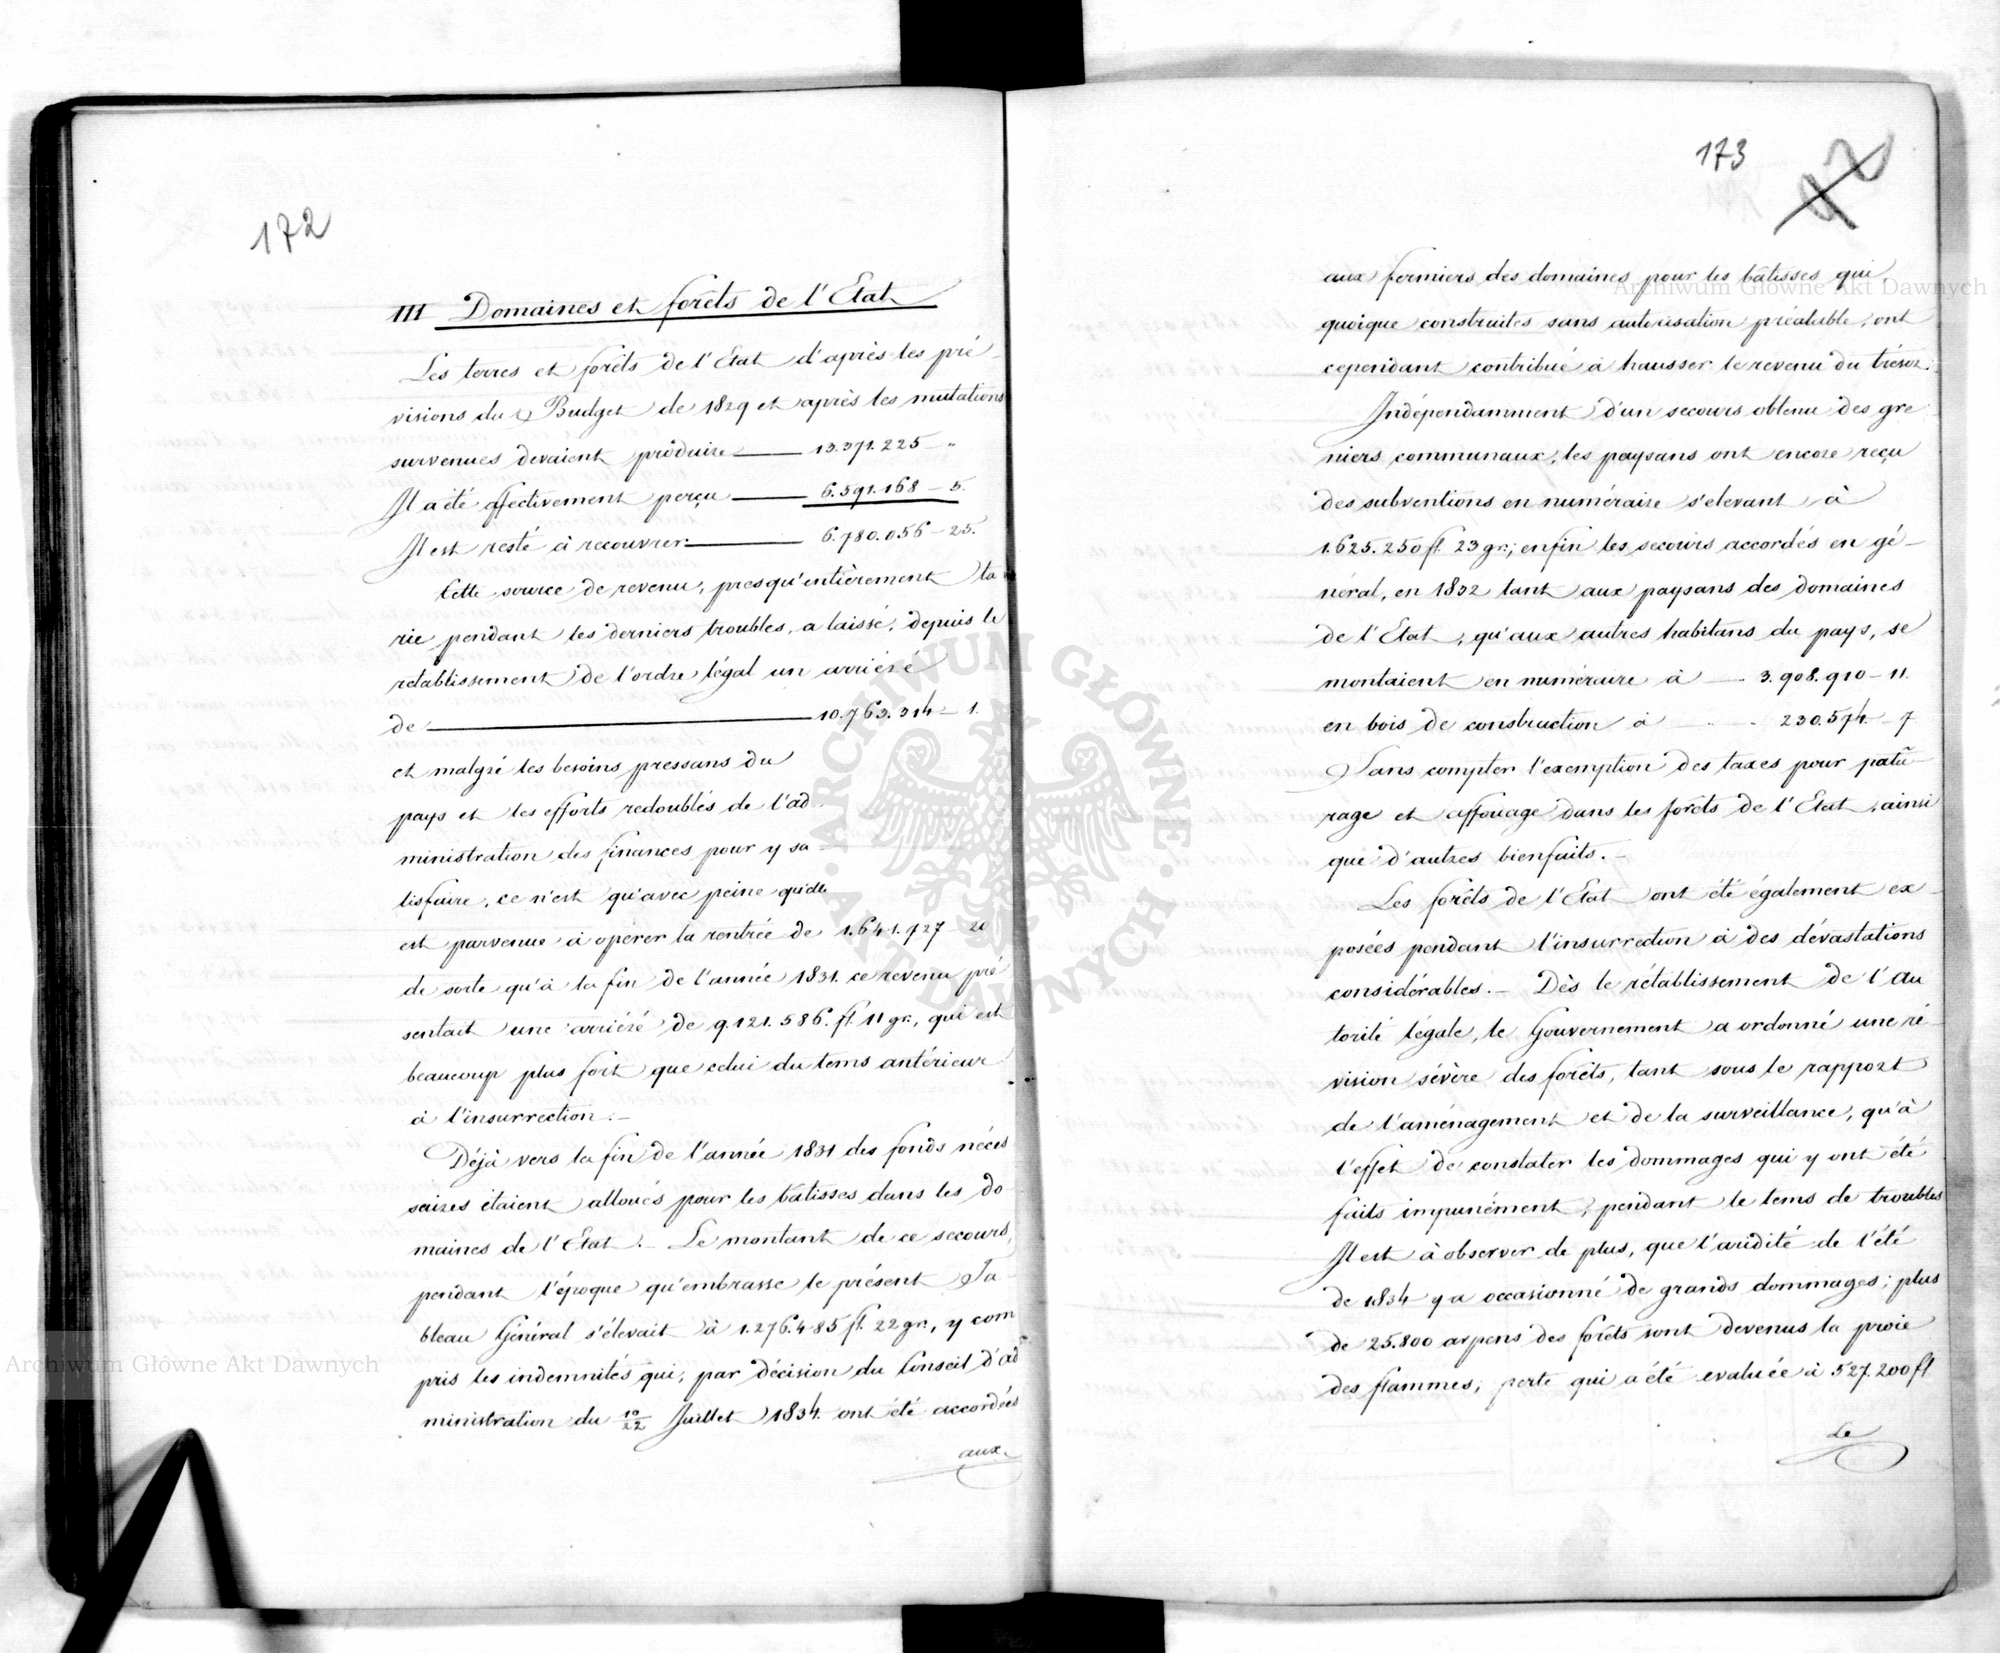 172
III Domaines et forêts de l'Etat
Les terres et forêts de l'Etat d'après les pré-
visions du Budget de 1829 et après les mutations
survenues devaient produire 13.371.225 - "
Il a été effectivement perçu 6.591.168 - 5.
Il est resté à recouvrer 6.780.056 - 25.
Cette source de revenu, presqu'entièrement ta
rie pendant les derniers troubles, a laissé, depuis le
rétablissement de l'ordre légal un arriéré
de 10.763.314 - 1.
et malgré les besoins pressans du
pays et les efforts redoublés de l'ad-
ministration des finances pour y sa-
tisfaire, ce n'est qu'avec peine qu'elle
est parvenue à opérer la rentrée de 1.641.727 - 20
de sorte qu'à la fin de l'année 1831. ce revenu pré
sentait une arriéré de 9.121.586. fl. 11 gr., qui est
beaucoup plus fort que celui du tems antérieur
à l'insurrection. -
Déjà vers la fin de l'année 1831 des fonds néces
saires étaient alloués pour les batisses dans les do-
maines de l'Etat. - Le montant de ce secours,
pendant l'époque qu'embrasse le présent Ta-
bleau Général s'élevait à 1.276.485 fl. 22 gr., y com
pris les indemnités qui, par décision du Conseil d'ad
ministration du 10/22 Juillet 1834. ont été accordées
aux
173
42
aux fermiers des domaines pour les bâtisses qui,
quoique construites sans autorisation préalable, ont
cependant contribué à hausser le revenu du trésor.
Indépendamment d'un secours obtenu des gre
niers communaux, les paysans ont encore reçu
des subventions en numéraire s'elevant à
1.625.250 fl. 23 gr.; enfin les secours accordés en gé-
néral, en 1832 tant aux paysans des domaines
de l'Etat, qu'aux autres habitans du pays, se
montaient en numéraire à 3.908.910 - 11.
en bois de construction à 230.574. - 7
Sans compter l'exemption des taxes pour patu-
rage et affouage dans les forêts de l'Etat, ainsi
que d'autres bienfaits. -
Les forêts de l'Etat ont été également ex-
posées pendant l'insurrection à des dévastations
considérables. - Dès le rétablissement de l'au
torité légale, le Gouvernement a ordonné une ré-
vision sévère des forêts, tant sous le rapport
de l'aménagement et de la surveillance, qu'à
l'effet de constater les dommages qui y ont été
faits impunément, pendant le tems de troubles
Il est à observer de plus, que l'aridité de l'été
de 1834 y a occasionné de grands dommages; plus
de 25.800 arpens des forêts sont devenus la proie
des flammes; perte qui a été evaluée à 527.200 fl
Le
Archiwum Główne Akt Dawnych
Archiwum Główne Akt Dawnych
ARCHIWUM GŁÓWNE AKT DAWNYCH